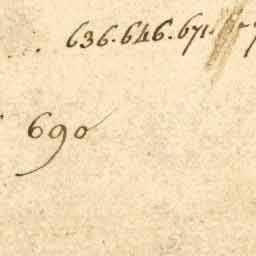 636. 646. 671.
690